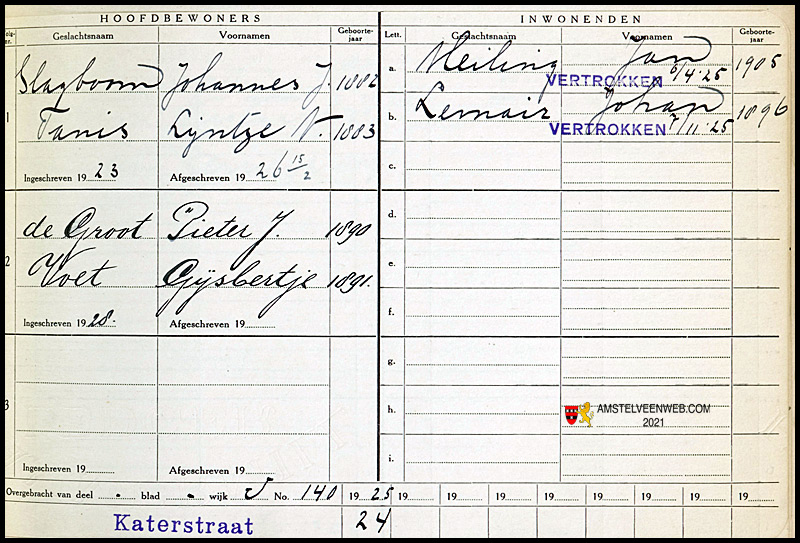 HOOFDBEWONERS
Geslachtsnaam Voornamen Geboorte-jaar
Slagboom Johannes J. 1882
1
Tanis Lijntje N. 1883
Ingeschreven 19 23 Afgeschreven 19 26 15/2
de Groot Pieter J. 1890
2
Voet Gijsbertje 1891.
Ingeschreven 19 28. Afgeschreven 19
3
Ingeschreven 19 Afgeschreven 19
INWONENDEN
Lett. Geslachtsnaam Voornamen Geboorte-jaar
a. Meiling Jan 1905
VERTROKKEN 6/4 '25
b. Lemair Johan 1896
VERTROKKEN 7/11 '25
c.
d.
e.
f.
g.
h.
i.
AMSTELVEENWEB.COM
2021
Overgebracht van deel blad wijk No. 140 19 25 19 19 19 19 19 19 19
Katerstraat 24